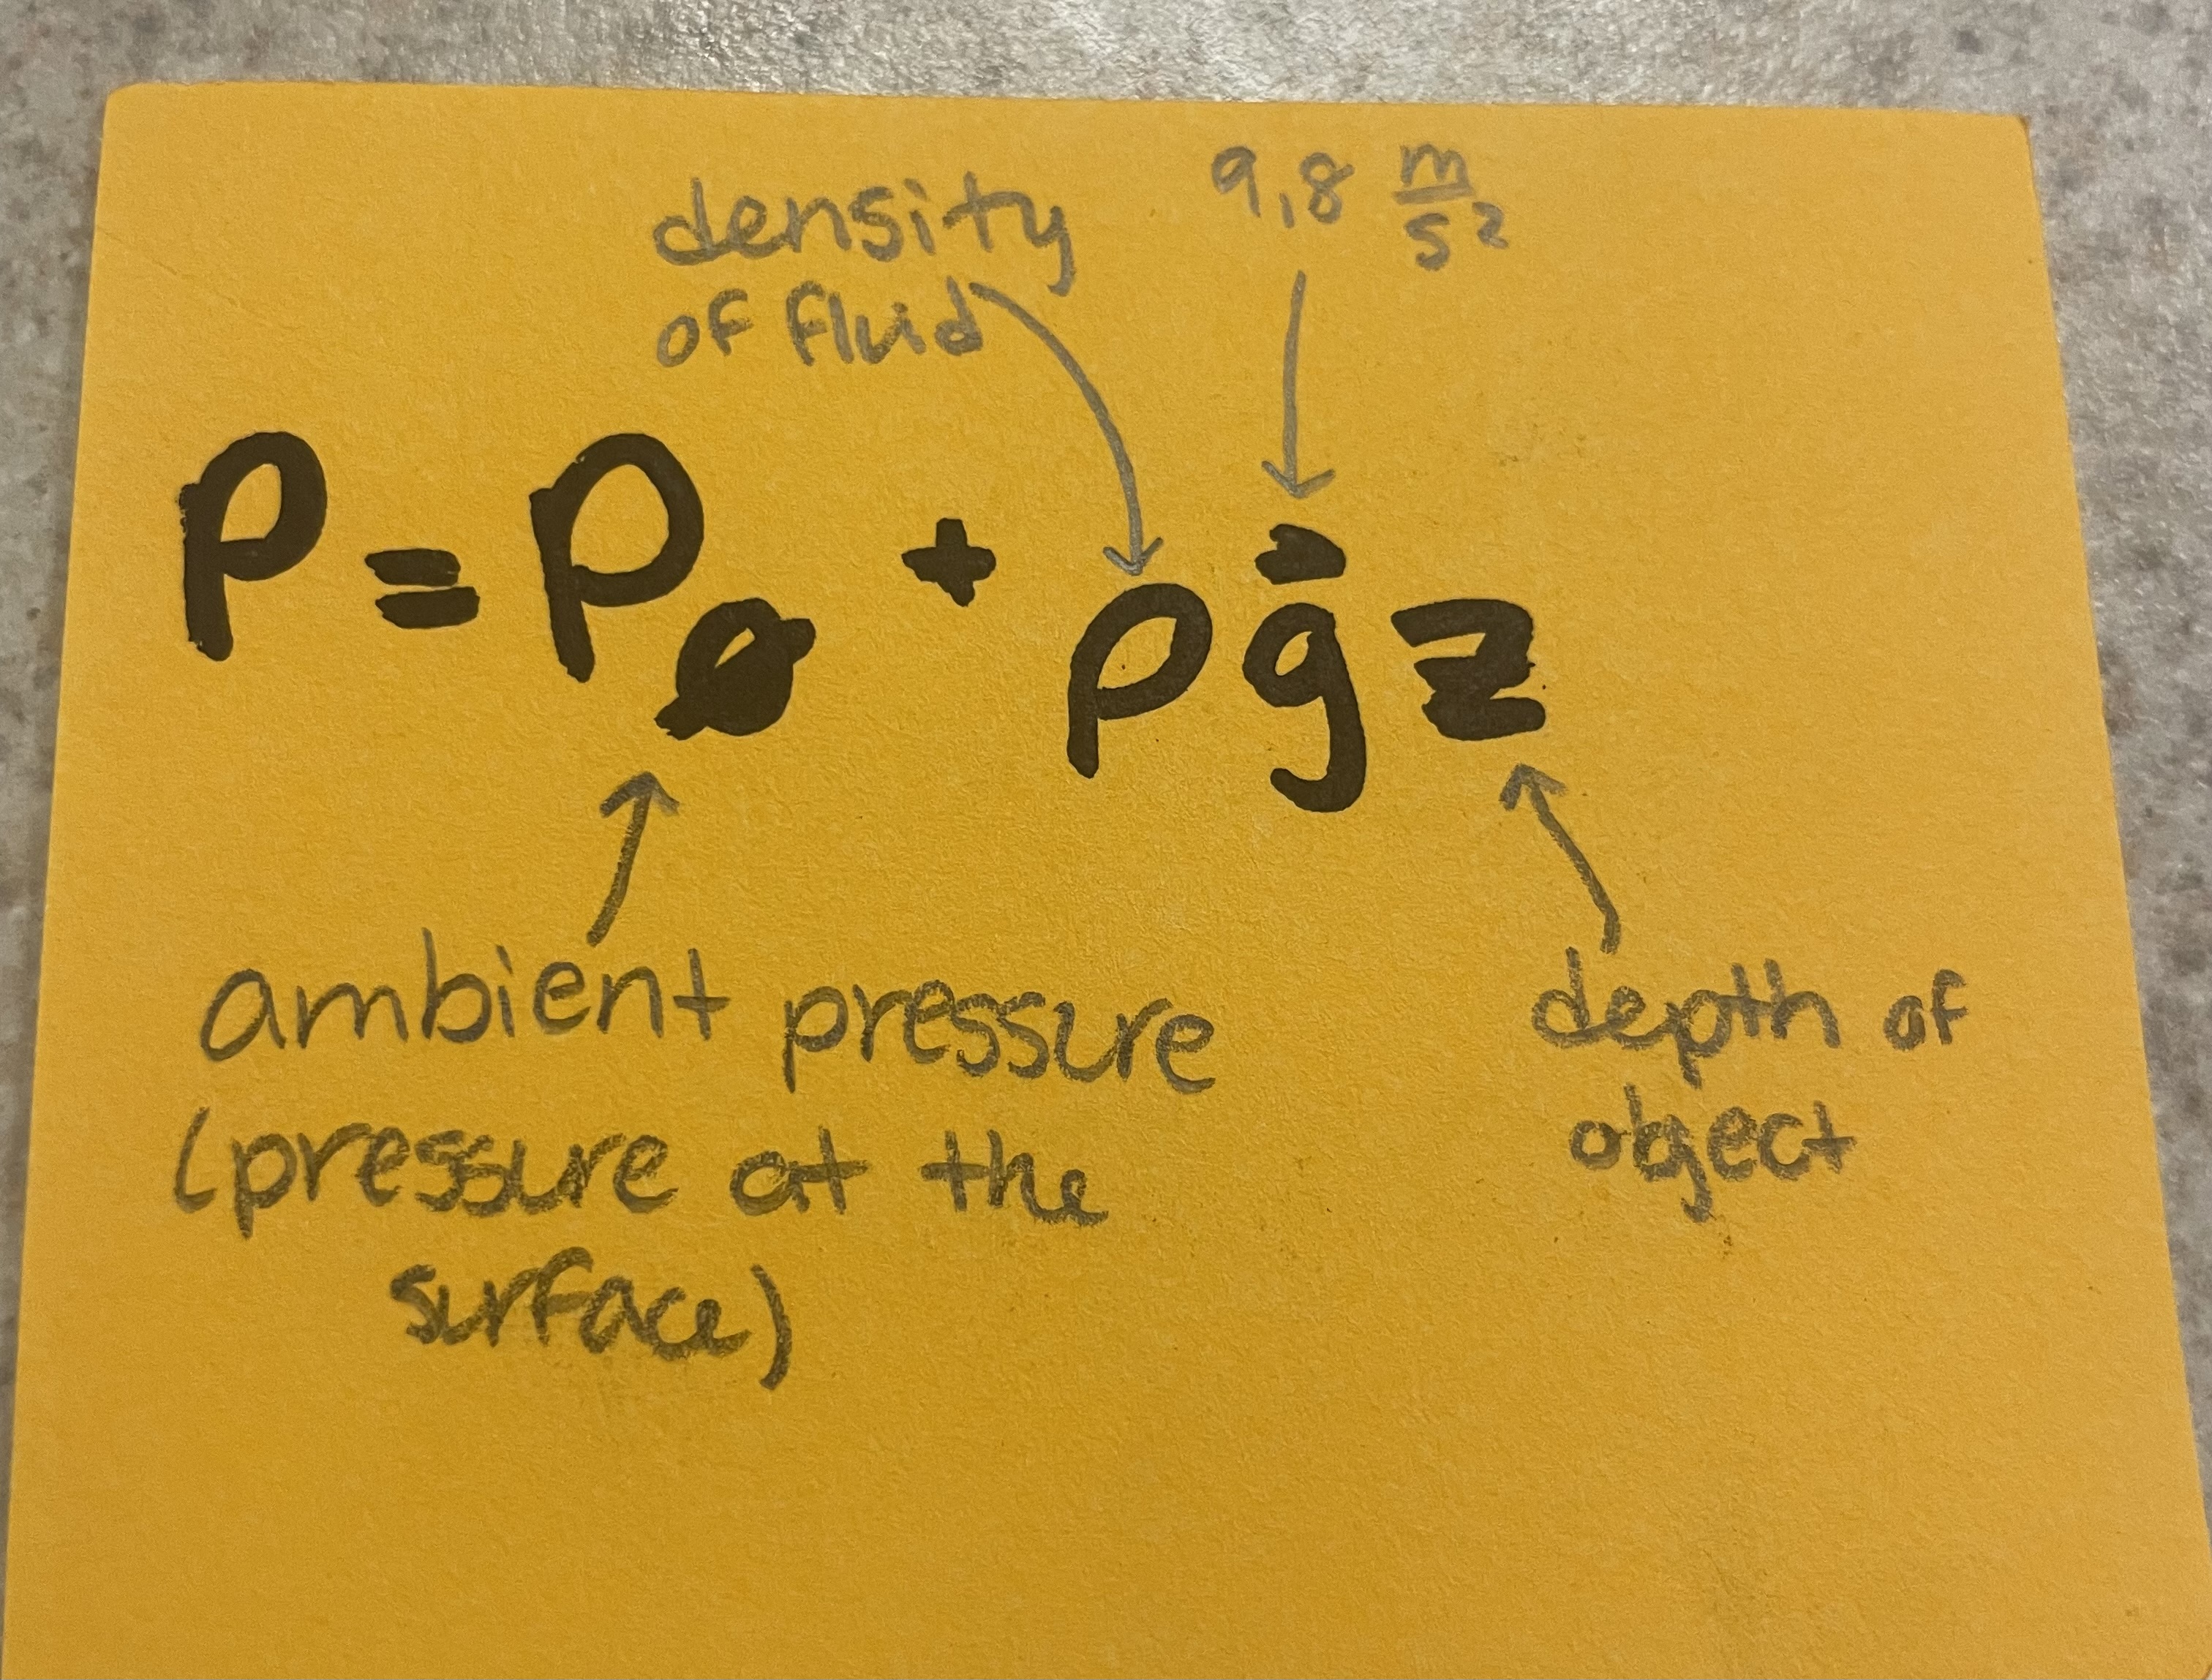 density
of fluid
9.8 m/s²
P = P₀ + ρg⃗z
ambient pressure
(pressure at the
surface)
depth of
object